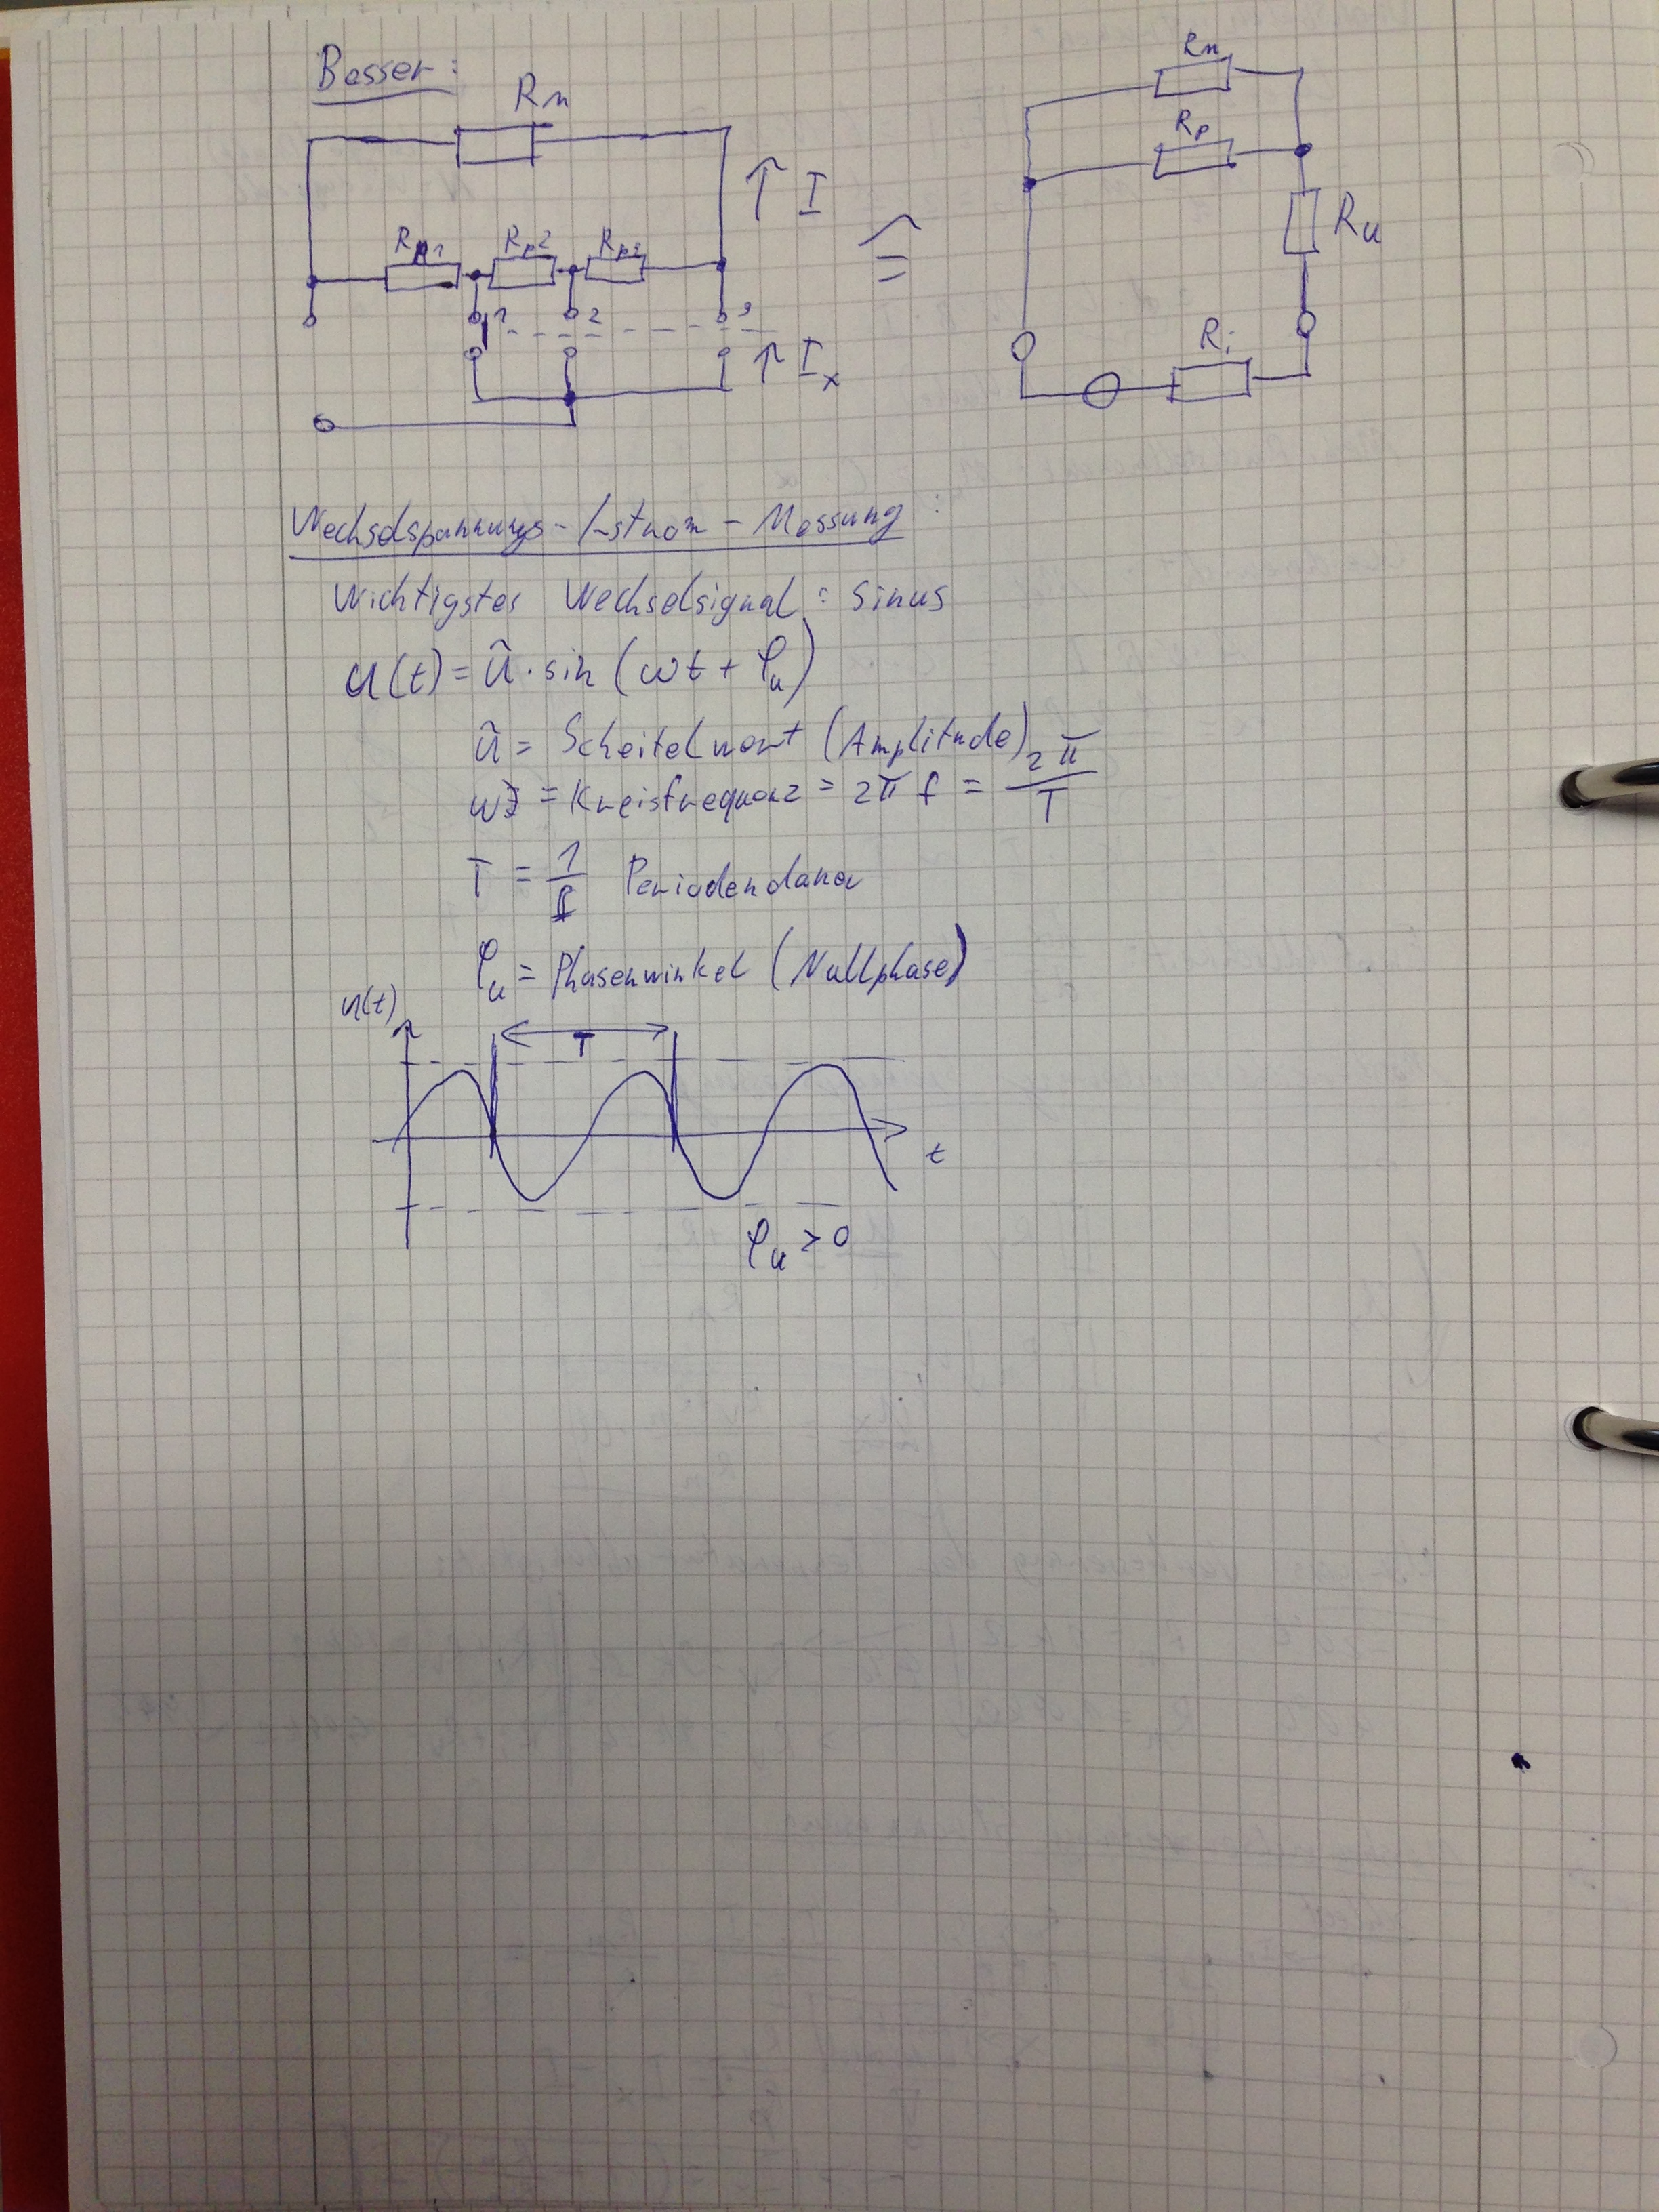 Besser:
Rm
I
Rp1 Rp2 Rp3
1 2 3
Ix
≙
Rm
Rp
Ru
Ri
Wechselspannungs-/-strom-Messung:
Wichtigstes Wechselsignal: Sinus
u(t) = û · sin (ωt + φu)
û = Scheitelwert (Amplitude)
ω = Kreisfrequenz = 2π f = 2π/T
T = 1/f Periodendauer
φu = Phasenwinkel (Nullphase)
u(t)
T
t
φu > 0